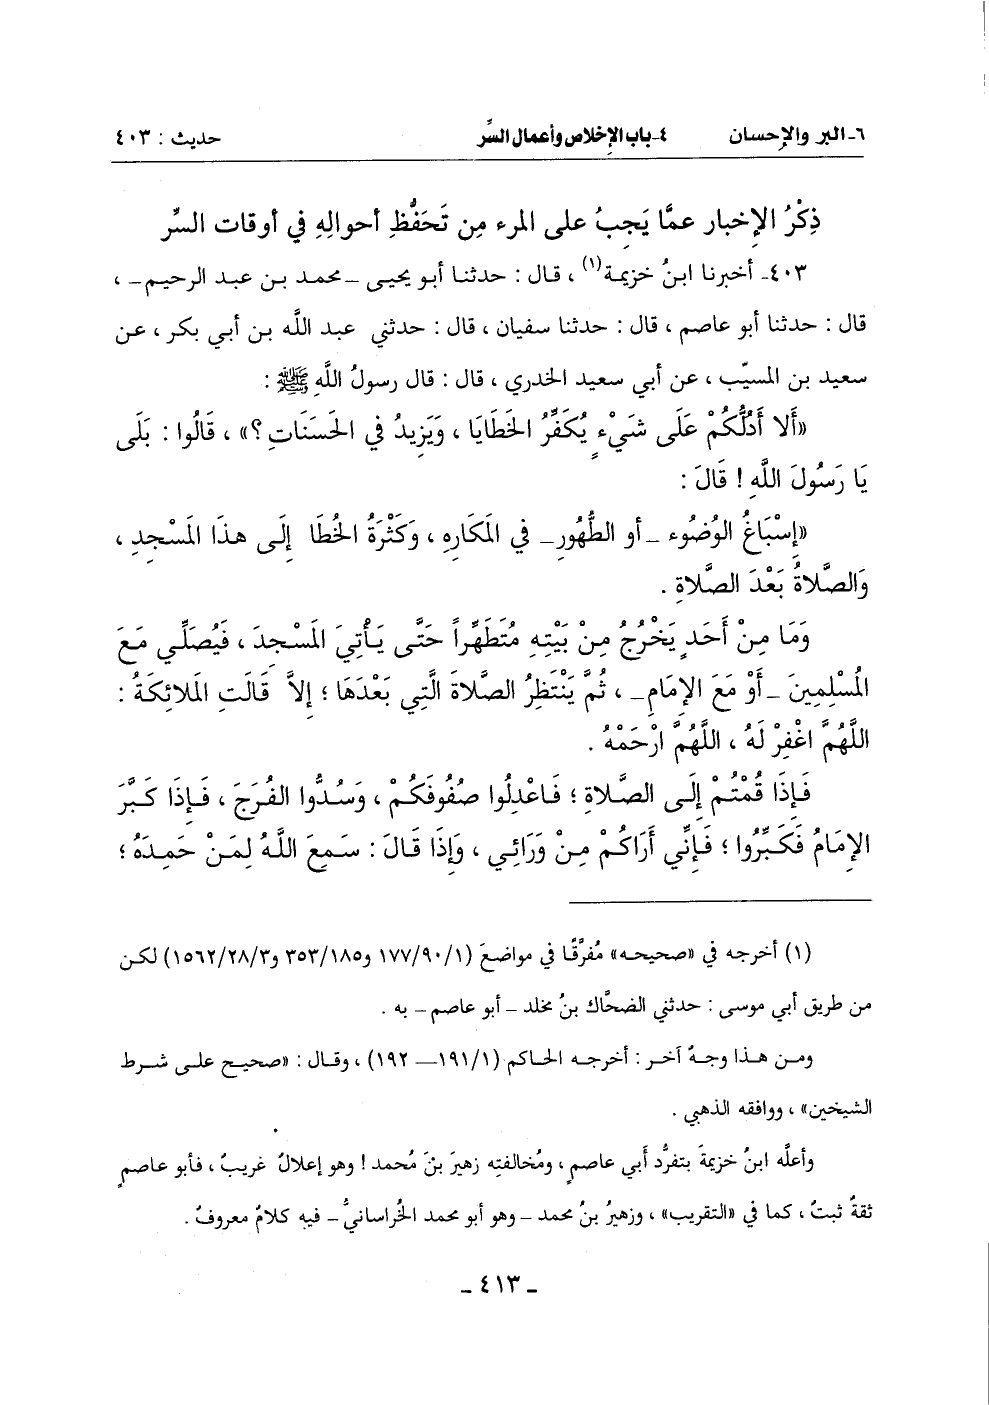 ٦ـ البر والإحسان ٤ـ باب الإخلاص وأعمال السِّر حديث : ٤٠٣
ذِكْرُ الإخبار عمَّا يَجِبُ على المرء مِن تَحَفُّظِ أحوالِهِ في أوقات السِّر
٤٠٣ـ أخبرنا ابنُ خزيمة(١) ، قال : حدثنا أبو يحيى ـ محمد بن عبد الرحيم ـ ،
قال : حدثنا أبو عاصم ، قال : حدثنا سفيان ، قال : حدثني عبد اللَّه بن أبي بكر ، عن
سعيد بن المسيّب ، عن أبي سعيد الخدري ، قال : قال رسولُ اللَّهِ ﷺ :
«أَلا أَدُلُّكُمْ عَلَى شَيْءٍ يُكَفِّرُ الخَطَايَا ، وَيَزِيدُ في الحَسَنَاتِ ؟» ، قَالُوا : بَلَى
يَا رَسُولَ اللَّهِ ! قَالَ :
«إِسْبَاغُ الوُضُوءِ ـ أو الطُّهُورِ ـ في المَكَارِهِ ، وَكَثْرَةُ الخُطَا إِلَى هذَا المَسْجِدِ ،
وَالصَّلاةُ بَعْدَ الصَّلاةِ .
وَمَا مِنْ أَحَدٍ يَخْرُجُ مِنْ بَيْتِهِ مُتَطَهِّراً حَتَّى يَأْتِيَ المَسْجِدَ ، فَيُصَلِّي مَعَ
المُسْلِمِينَ ـ أَوْ مَعَ الإِمَامِ ـ ، ثُمَّ يَنْتَظِرُ الصَّلاةَ الَّتِي بَعْدَهَا ؛ إِلاَّ قَالَتِ المَلائِكَةُ :
اللَّهُمَّ اغْفِرْ لَهُ ، اللَّهُمَّ ارْحَمْهُ .
فَإِذَا قُمْتُمْ إِلَى الصَّلاةِ ؛ فَاعْدِلُوا صُفُوفَكُمْ ، وَسُدُّوا الفُرَجَ ، فَإِذَا كَبَّرَ
الإِمَامُ فَكَبِّرُوا ؛ فَإِنِّي أَرَاكُمْ مِنْ وَرَائِي ، وَإِذَا قَالَ : سَمِعَ اللَّهُ لِمَنْ حَمِدَهُ ؛
(١) أخرجه في «صحيحه» مُفرَّقًا في مواضعَ (١٧٧/٩٠/١ و٣٥٣/١٨٥ و١٥٦٢/٢٨/٣) لكن
من طريق أبي موسى : حدثني الضحَّاك بنُ مخلد ـ أبو عاصم ـ به .
ومن هذا وجهٌ آخر : أخرجه الحاكم (١٩١/١ ـ ١٩٢) ، وقال : «صحيح على شرط
الشيخين» ، ووافقه الذهبي .
وأعلَّه ابنُ خزيمةَ بتفرُّد أبي عاصمٍ ، ومُخالفتِه زهيرَ بنَ مُحمد ! وهو إعلالٌ غريبٌ ، فأبو عاصمٍ
ثقةٌ ثبتٌ ، كما في «التقريب» ، وزهيرُ بنُ محمد ـ وهو أبو محمد الخُراسانيُّ ـ فيه كلامٌ معروفٌ .
ـ ٤١٣ ـ